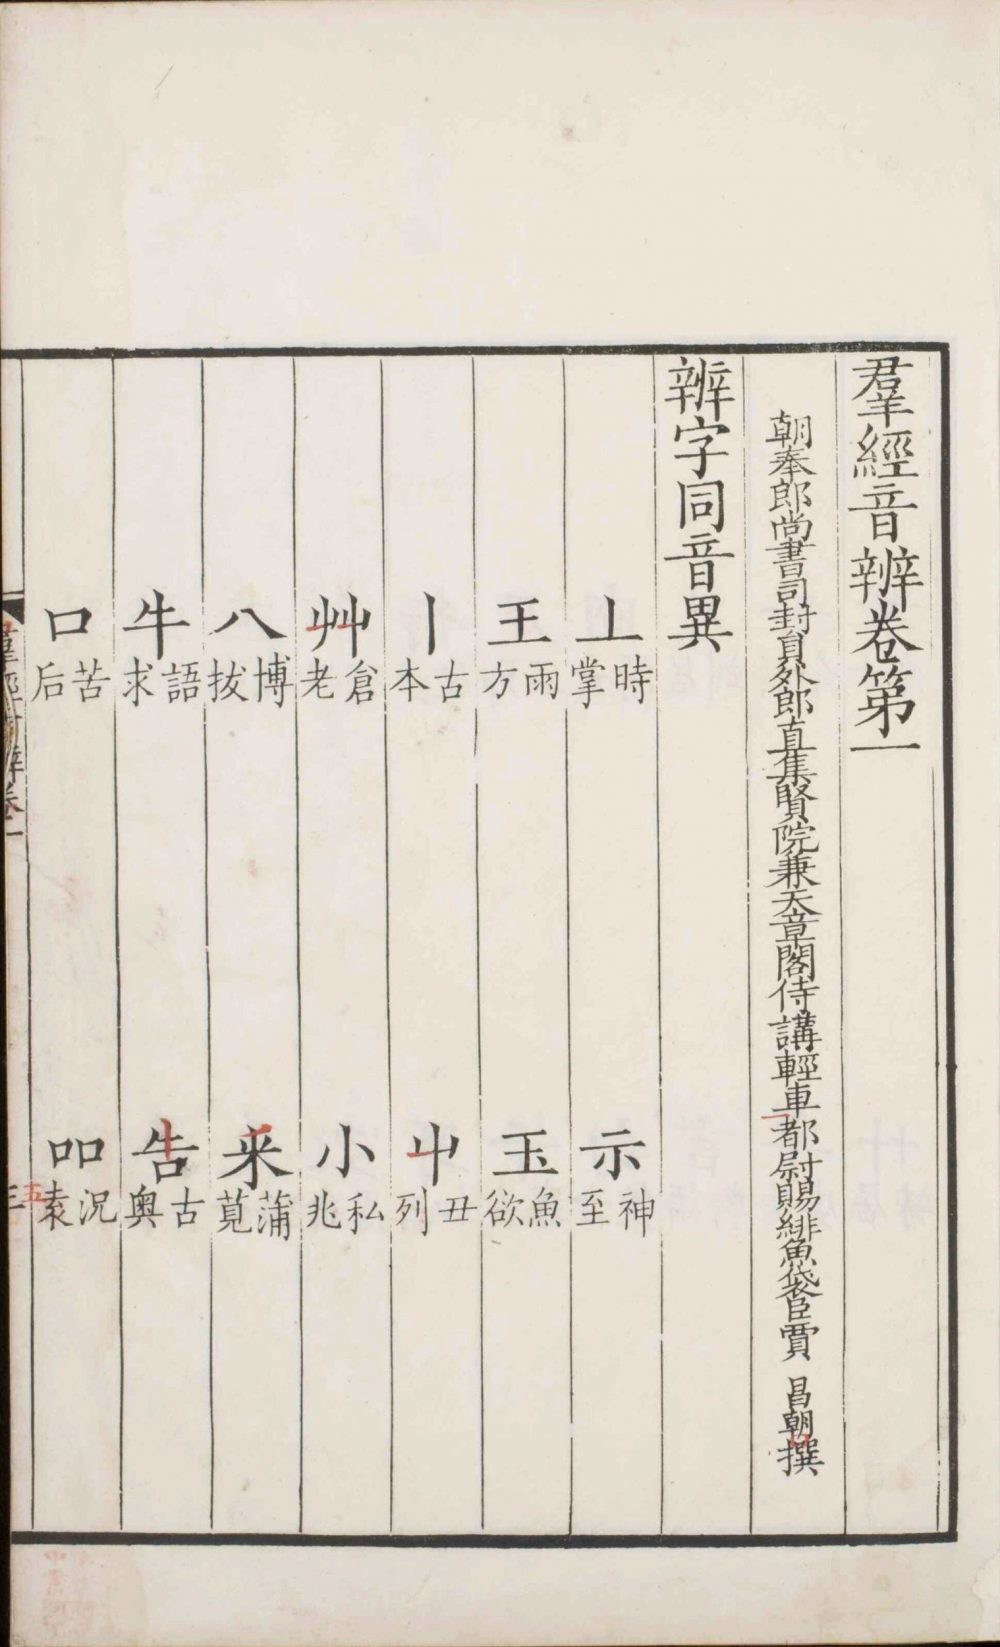 羣經音辨卷第一
朝奉郎尚書司封員外郎直集賢院兼天章閣侍講輕車都尉賜緋魚袋臣賈昌朝撰
辨字同音異
丄時掌 示神至
王雨方 玉魚欲
丨古本 屮丑列
艸倉老 小私兆
八博拔 釆蒲莧
牛語求 告古奥
口苦后 吅況袁